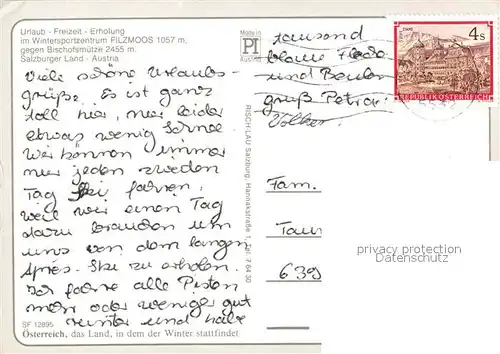 Urlaub - Freizeit - Erholung
im Wintersportzentrum FILZMOOS 1057 m,
gegen Bischofsmütze 2455 m.
Salzburger Land - Austria
Viele schöne Urlaubs-
grüße. Es ist ganz
toll hier, nur leider
etwas wenig Schnee.
Wir können immer
nur jeden zweiten
Tag Ski fahren,
weil wir einen Tag
dazu brauchen um
uns von dem langen
Apres-Ski zu erholen.
Ich fahre alle Pisten
mehr oder weniger gut
runter und habe
SF 12895
Österreich, das Land, in dem der Winter stattfindet
Made in
PI
Austria
RISCH-LAU Salzburg, Hannakstraße 1, Tel. 7 64 30
tausend
blaue Flecke
und Beulen
gruß Petra
Volker
4s
REPUBLIK ÖSTERREICH
Fam.
Tau
639
privacy protection